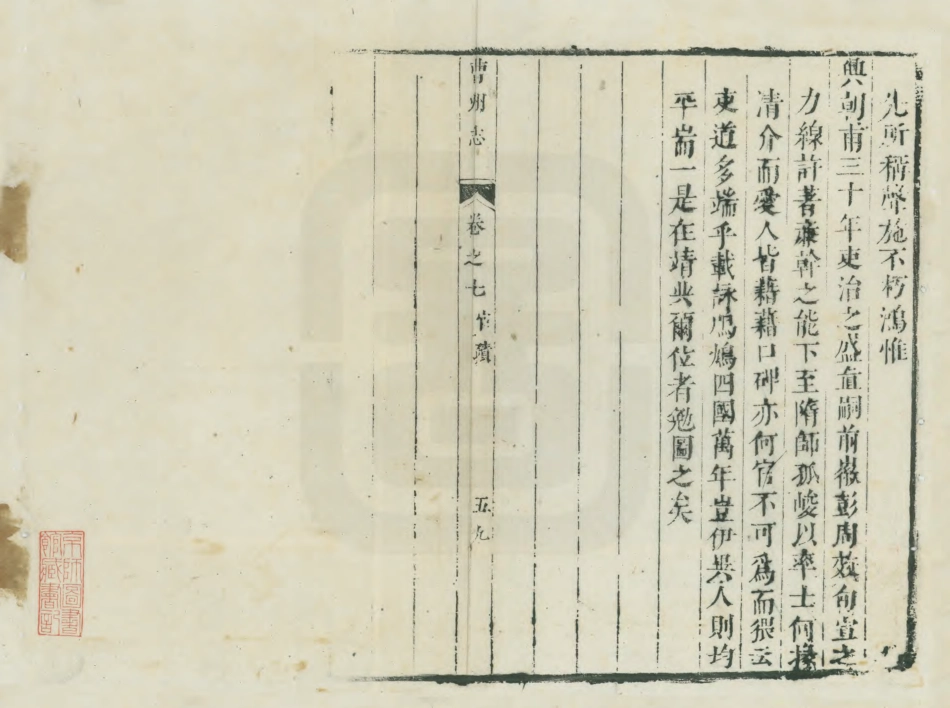 先所稱聲施不朽鴻惟
興朝甫三十年吏治之盛直嗣前徽彭周效旬宣之
力線許著兼幹之能下至隋師孤峻以率士何掾
清介而愛人皆藉藉口碑亦何官不可爲而猥云
吏道多端乎載詠鳲鳩四國萬年豈伊異人則均
平耑一是在靖共爾位者勉圖之矣
曹州志
卷之七 官蹟
五九
京師圖書館藏書記